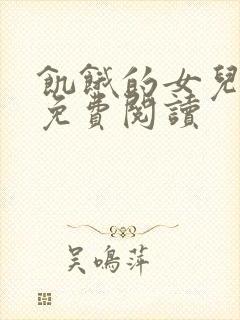 飢餓的女兒
免費閱讀
吳鳴萍